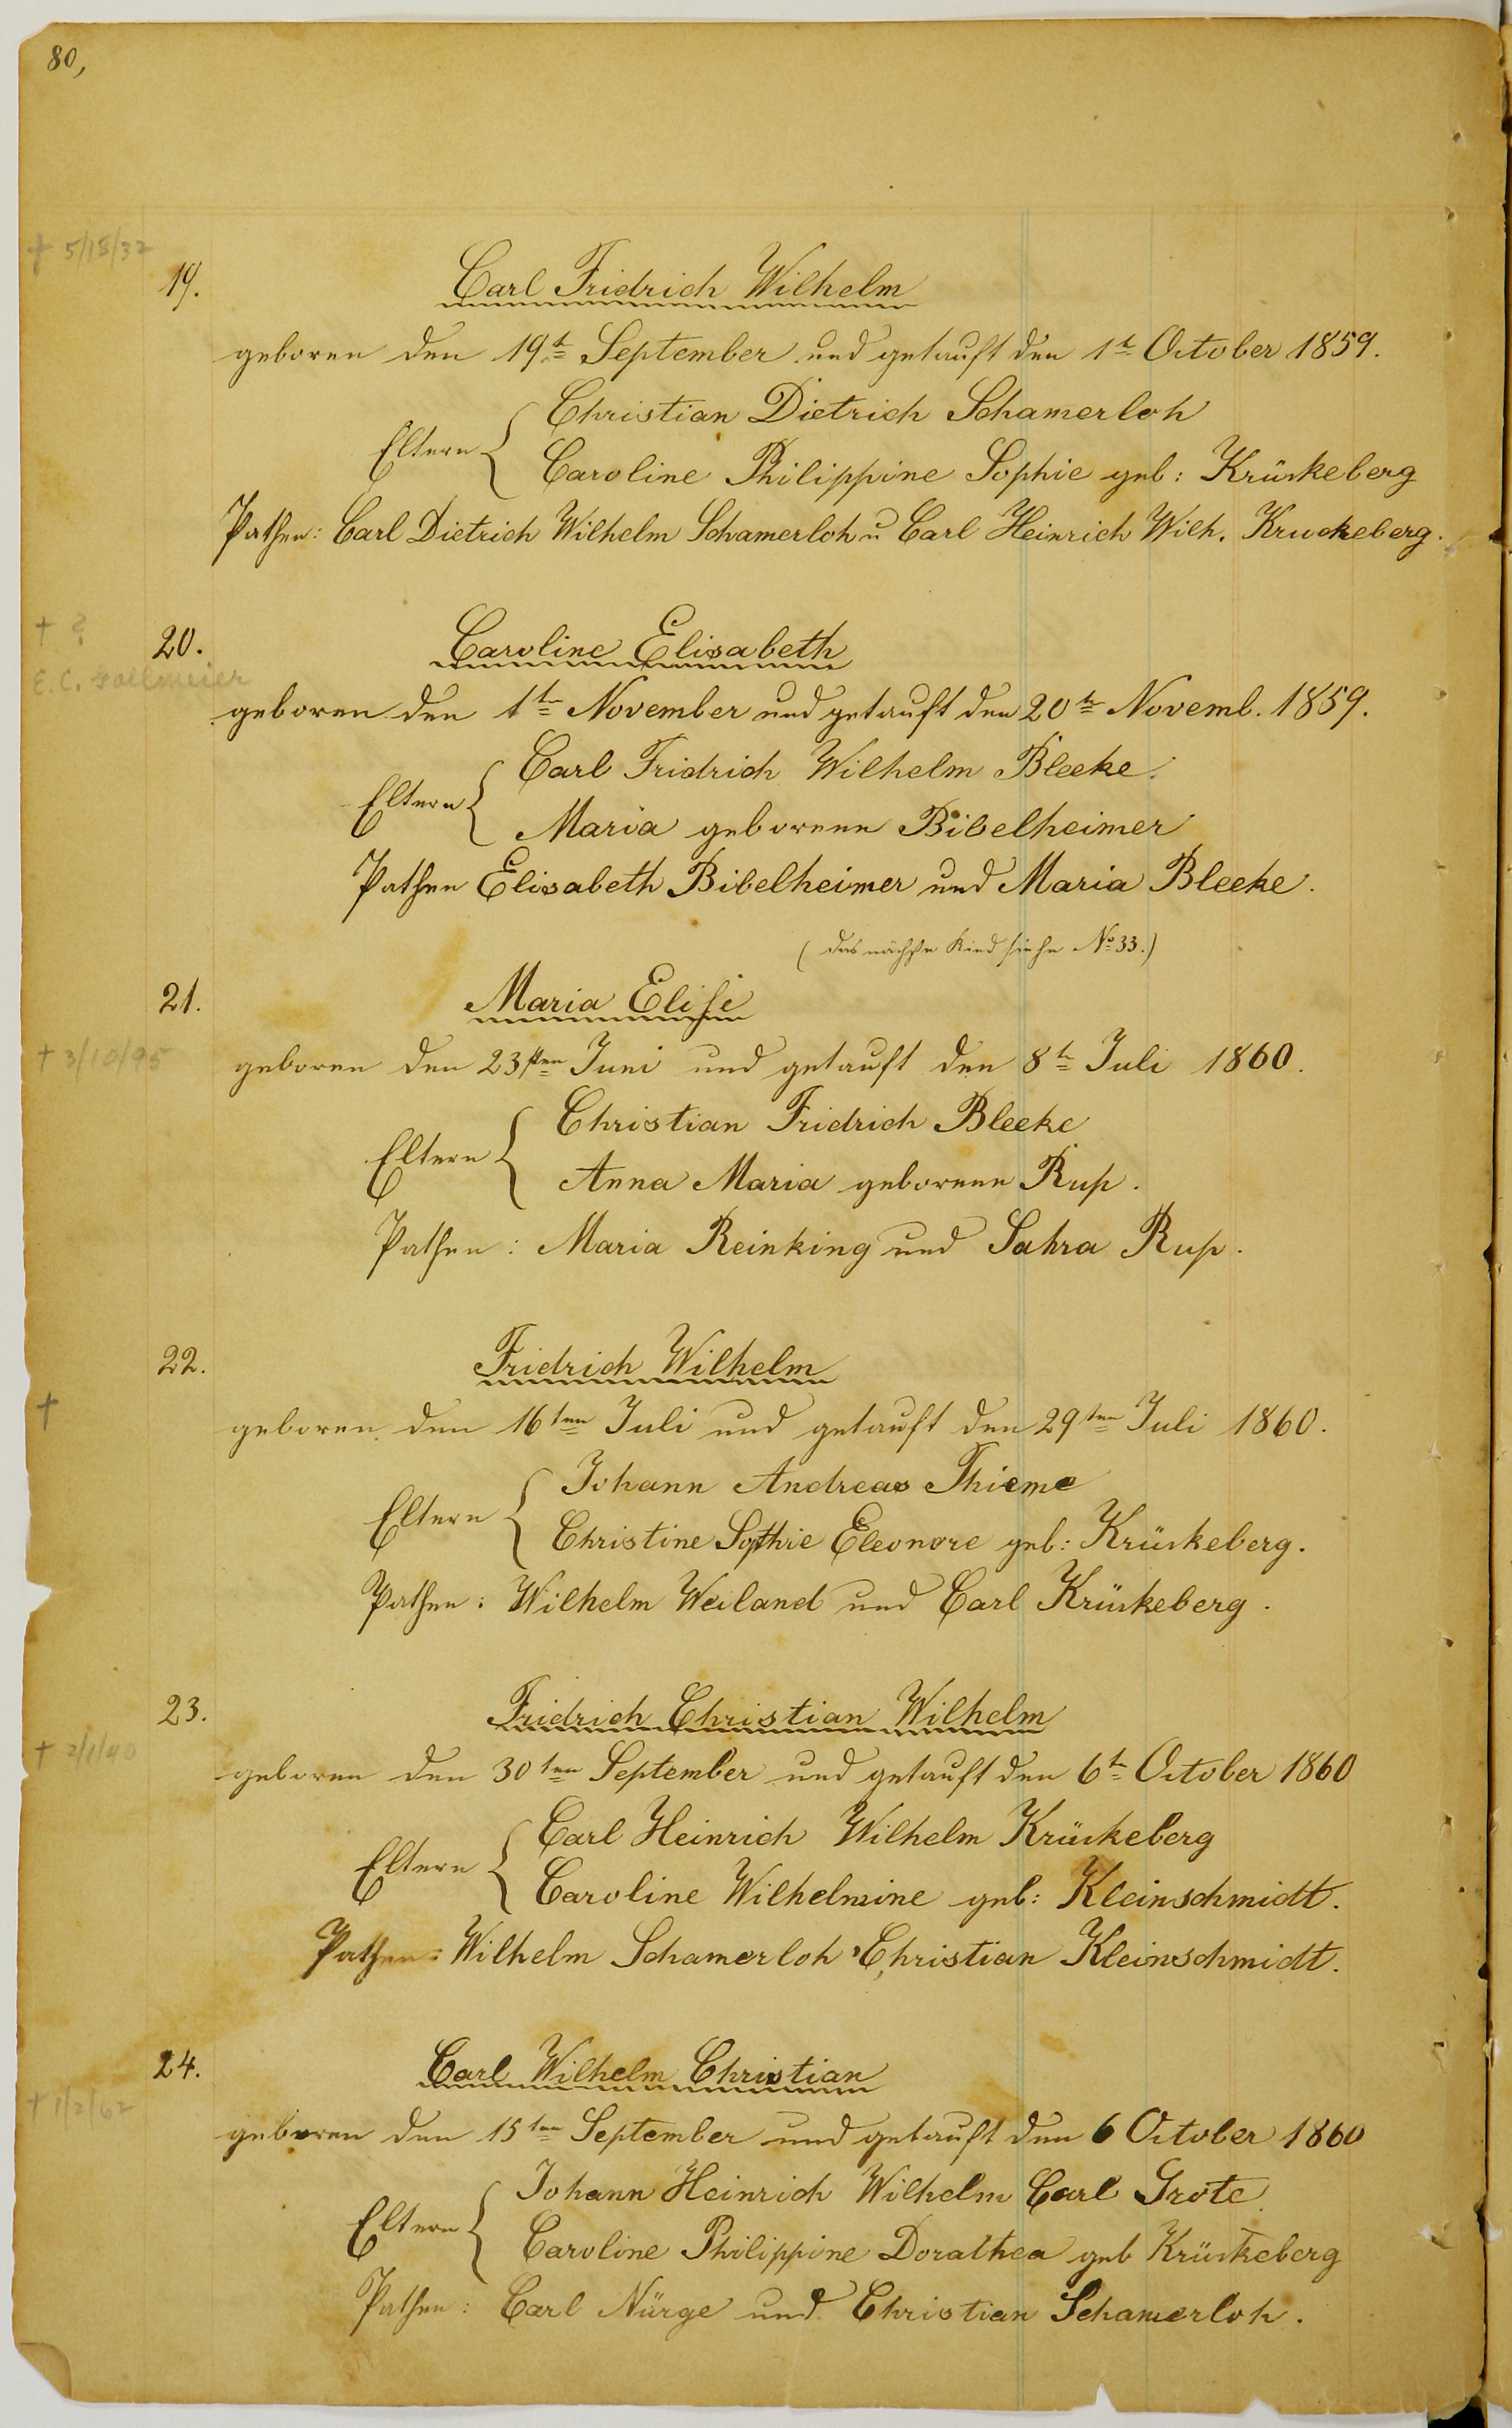 80,
† 5/18/37
19.
Carl Fridrich Wilhelm
geboren den 19t September und getauft den 1t October 1859.
Christian Dietrich Schamerloh
Eltern {
Caroline Philippine Sophie geb: Krückeberg
Pathen: Carl Dietrich Wilhelm Schamerloh u Carl Heinrich Wilh. Kruckeberg.
† ?
20.
Caroline Elisabeth
E. C.
geboren den 1tn November und getauft den 20tn Novemb. 1859.
Carl Fridrich Wilhelm Bleeke.
Eltern {
Maria geborene Bibelheimer
Pathen Elisabeth Bibelheimer und Maria Bleeke.
(das nächste Kind siehe No 33.)
21.
Maria Elise
† 3/10/95
geboren den 23sten Juni und getauft den 8tn Juli 1860.
Christian Fridrich Bleeke
Eltern {
Anna Maria geborene Rup.
Pathen: Maria Reinking und Sahra Rup.
22.
Fridrich Wilhelm
†
geboren den 16ten Juli und getauft den 29ten Juli 1860.
Johann Andreas Thieme
Eltern {
Christine Sophie Eleonore geb: Krückeberg.
Pathen: Wilhelm Weiland und Carl Krückeberg.
23.
Fridrich Christian Wilhelm
† 2/1/40
geboren den 30ten September und getauft den 6t October 1860
Carl Heinrich Wilhelm Krückeberg
Eltern {
Caroline Wilhelmine geb: Kleinschmidt.
Pathen: Wilhelm Schamerloh, Christian Kleinschmidt.
24.
Carl Wilhelm Christian
† 1/2/62
geboren den 15ten September und getauft den 6 October 1860
Johann Heinrich Wilhelm Carl Grote
Eltern {
Caroline Philippine Dorathea geb Krückeberg
Pathen: Carl Nürge und Christian Schamerloh.